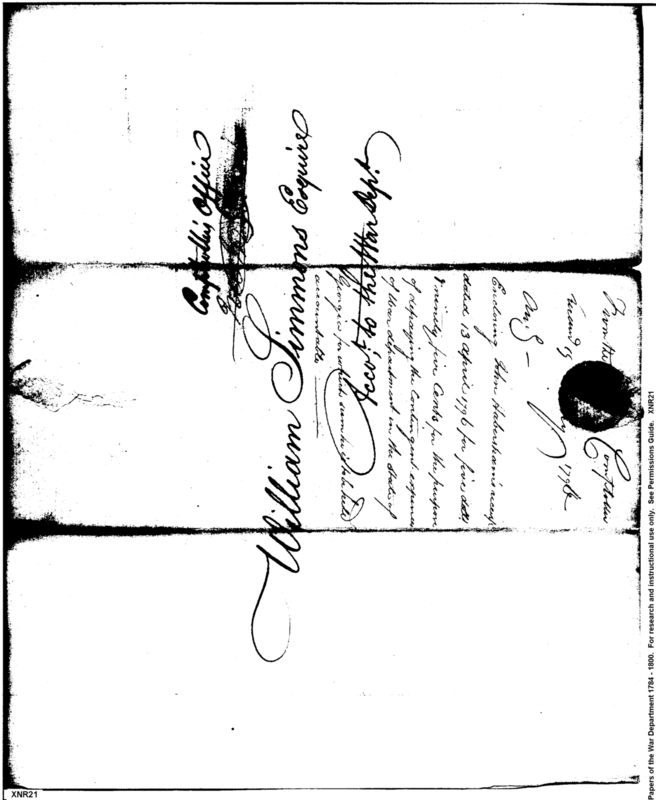 Comptrollers Office
William Simmons Esquire
Accot. to the War Dept.
From the Comptroller
1796
Enclosing John Habersham's receipt
dated 13 April 1796 for five dolls
ninety five Cents for the purpose
of defraying the Contingent expences
of War department in the State of
Georgia for which sum he is to be held
accountable
XNR21
Papers of the War Department 1784 - 1800. For research and instructional use only. See Permissions Guide. XNR21